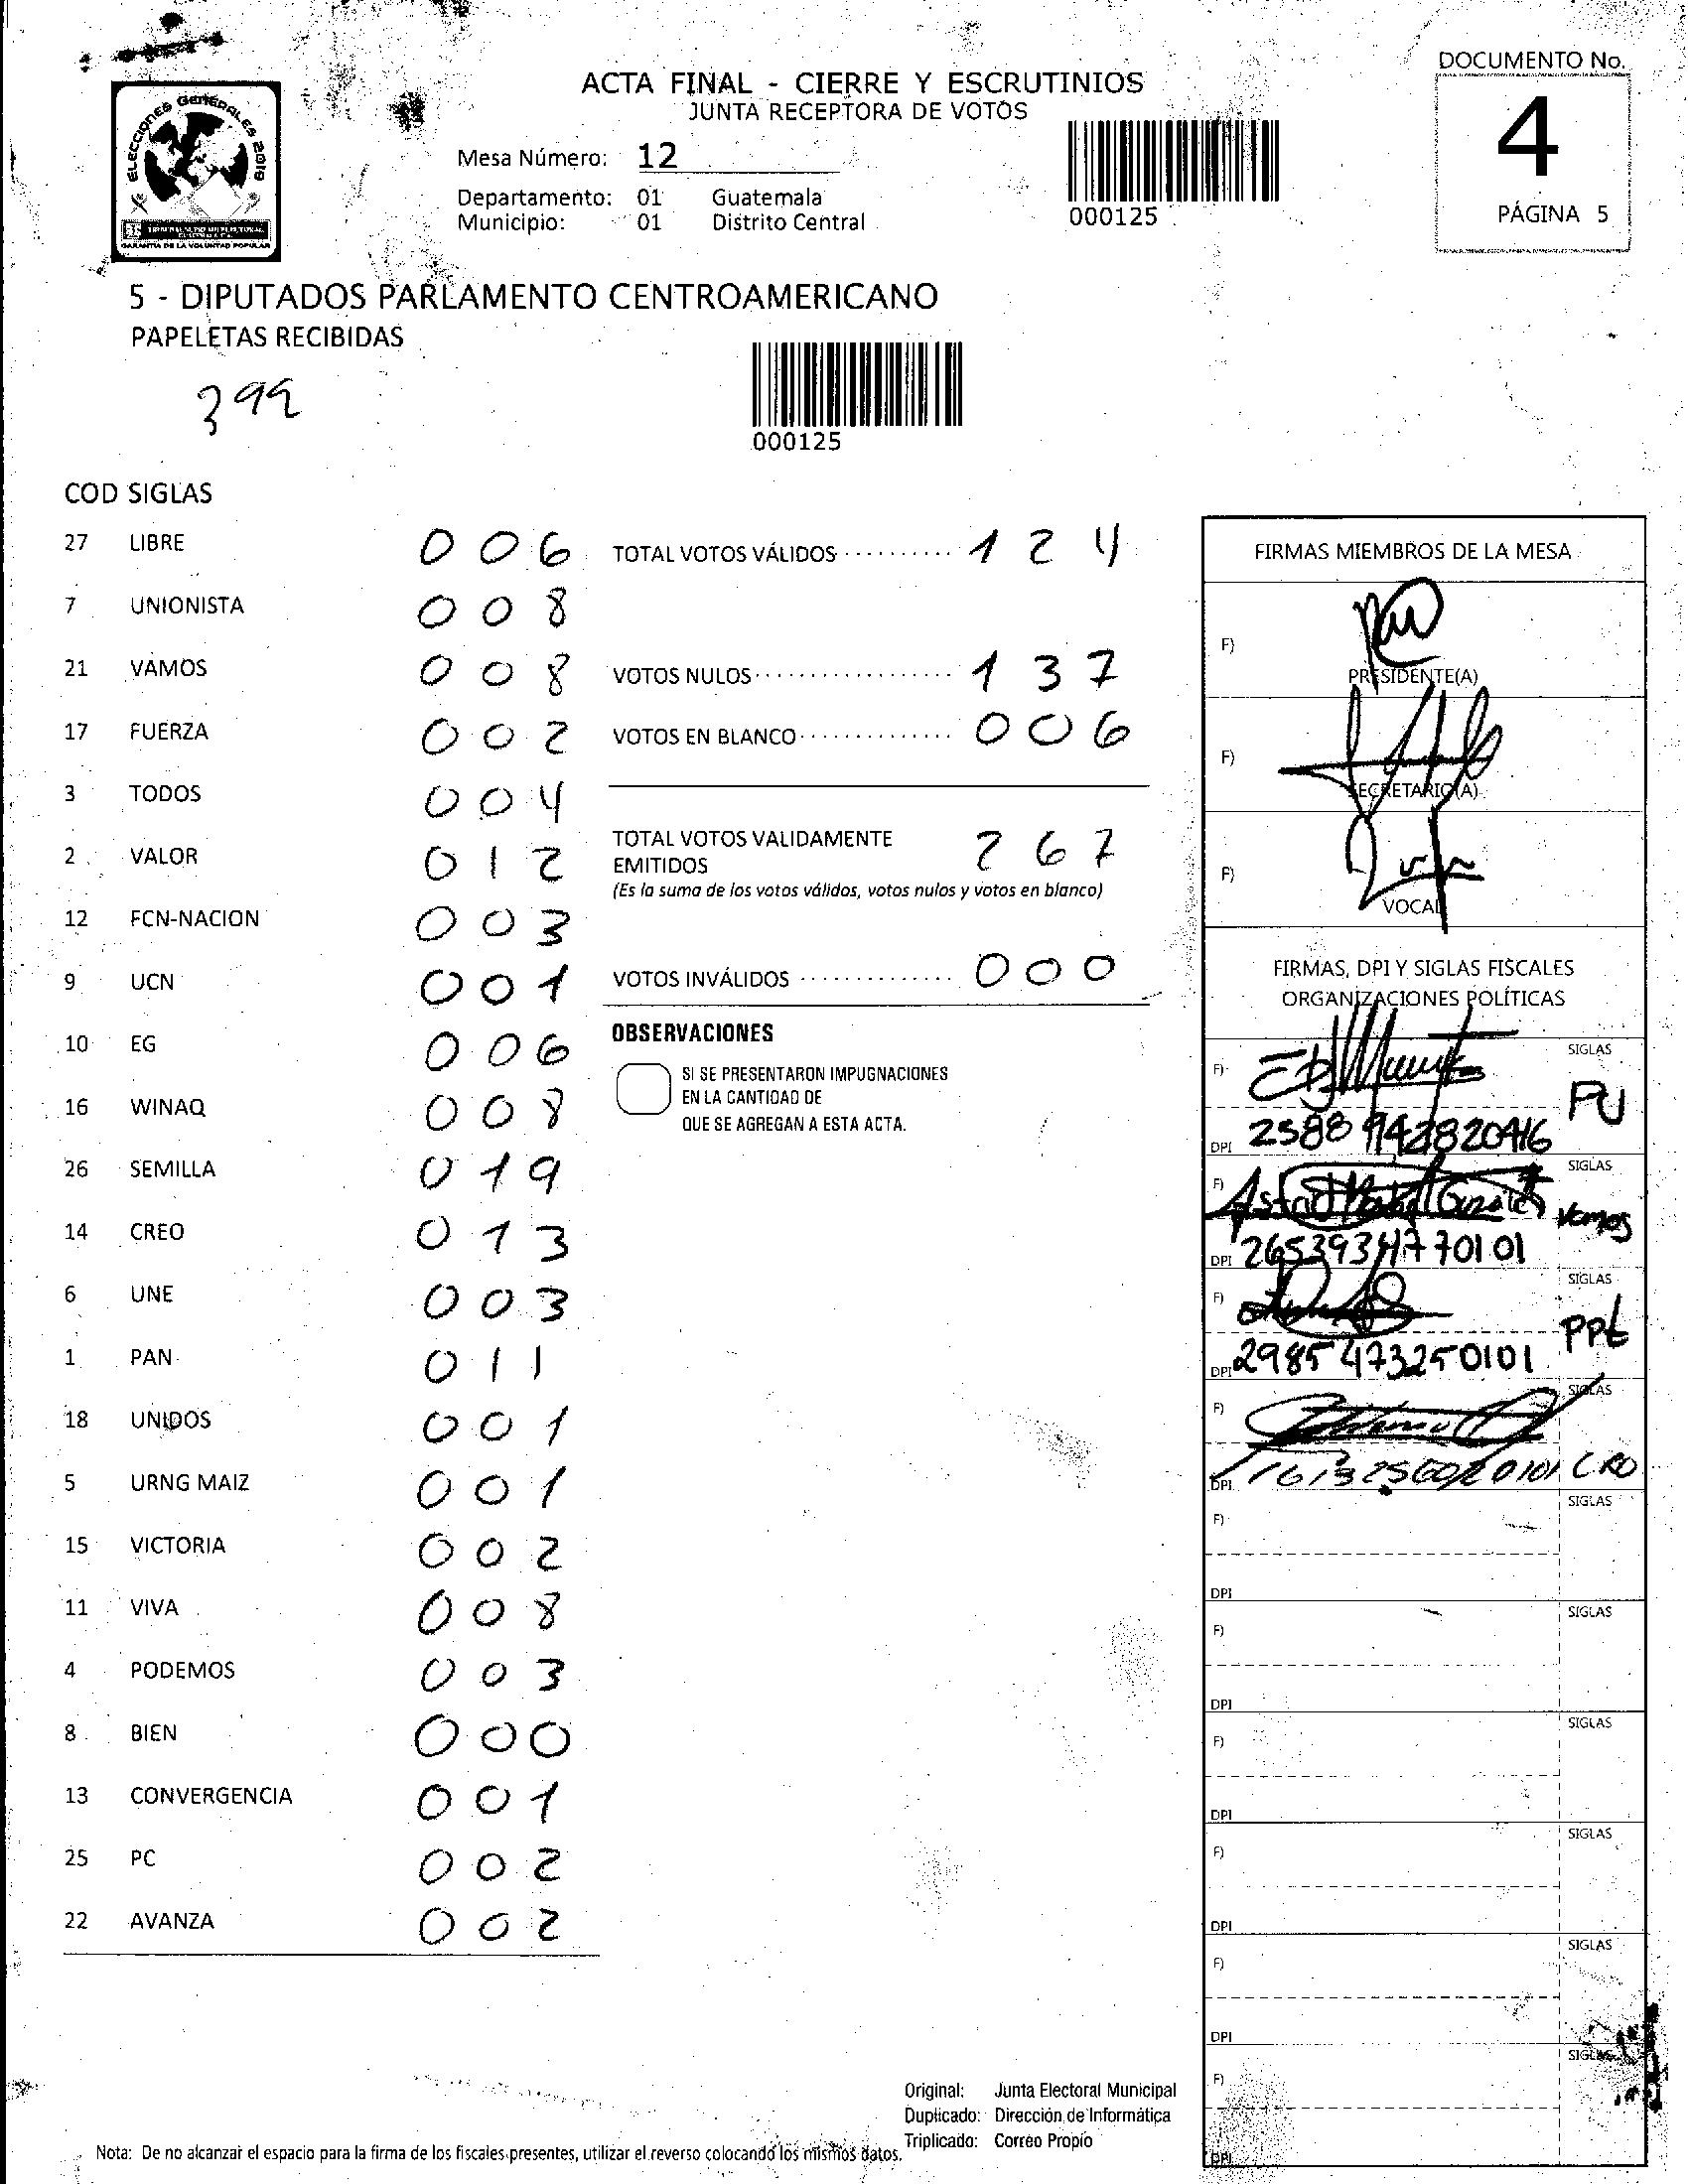 DOCUMENTO No.
4
PÁGINA 5
ELECCIONES GENERALES 2019
GARANTÍA DE LA VOLUNTAD POPULAR
ACTA FINAL - CIERRE Y ESCRUTINIOS
JUNTA RECEPTORA DE VOTOS
Mesa Número: 12
Departamento: 01 Guatemala
Municipio: 01 Distrito Central
000125
5 - DIPUTADOS PARLAMENTO CENTROAMERICANO
PAPELETAS RECIBIDAS
399
000125
COD SIGLAS
27 LIBRE 006
7 UNIONISTA 008
21 VAMOS 008
17 FUERZA 002
3 TODOS 004
2 VALOR 012
12 FCN-NACION 003
9 UCN 001
10 EG 006
16 WINAQ 008
26 SEMILLA 019
14 CREO 013
6 UNE 003
1 PAN 011
18 UNIDOS 001
5 URNG MAIZ 001
15 VICTORIA 002
11 VIVA 008
4 PODEMOS 003
8 BIEN 000
13 CONVERGENCIA 001
25 PC 002
22 AVANZA 002
TOTAL VOTOS VÁLIDOS 124
VOTOS NULOS 137
VOTOS EN BLANCO 006
TOTAL VOTOS VALIDAMENTE
EMITIDOS 267
(Es la suma de los votos válidos, votos nulos y votos en blanco)
VOTOS INVÁLIDOS 000
OBSERVACIONES
SI SE PRESENTARON IMPUGNACIONES
EN LA CANTIDAD DE
QUE SE AGREGAN A ESTA ACTA.
FIRMAS MIEMBROS DE LA MESA
F)
PRESIDENTE(A)
F)
SECRETARIO(A)
F)
VOCAL
FIRMAS, DPI Y SIGLAS FISCALES
ORGANIZACIONES POLÍTICAS
F) SIGLAS
PU
DPI 2588
F) SIGLAS
Astrid Vamos
DPI
F) SIGLAS
PPt
DPI 2985 473250101
F) SIGLAS
DPI CRO
F) SIGLAS
DPI
F) SIGLAS
DPI
F) SIGLAS
DPI
F) SIGLAS
DPI
F) SIGLAS
DPI
F) SIGLAS
DPI
Original: Junta Electoral Municipal
Duplicado: Dirección de Informática
Triplicado: Correo Propio
Nota: De no alcanzar el espacio para la firma de los fiscales presentes, utilizar el reverso colocando los mismos datos.